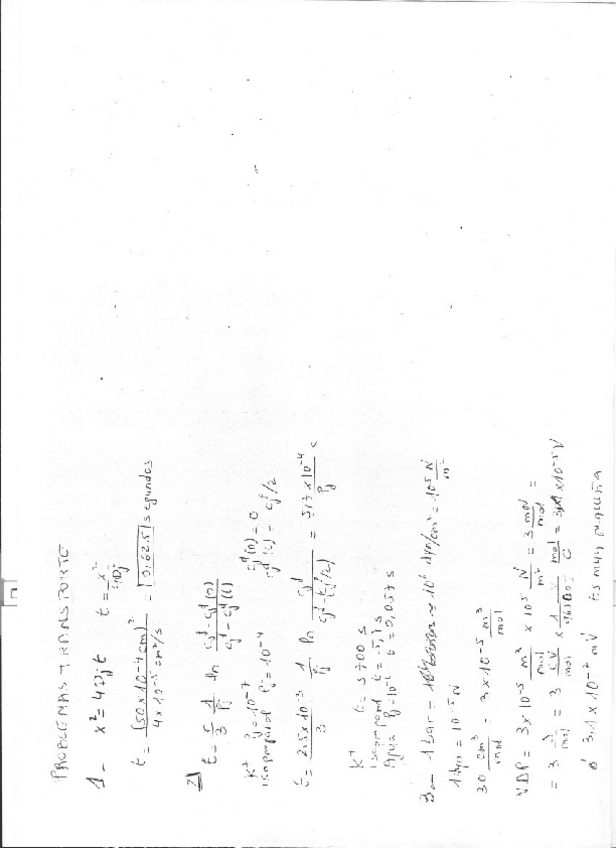 PROBLEMAS TRANSPORTE
1- x² = 4Djt t = x²/4Dj
t = (50 x 10⁻⁴ cm)² / 4 x 10⁻⁵ cm²/s = 0,625 segundos
2) t = r/3 1/Pj ln (cj^e - cj^i(0)) / (cj^e - cj^i(t))
K⁺ Pj = 10⁻⁷ cj^i(0) = 0
isopropanol Pj = 10⁻⁴ cj^i(t) = cj^e/2
t = 2,5 x 10⁻³/3 1/Pj ln cj^e/(cj^e - cj^e/2) = 5,7 x 10⁻⁴/Pj s
K⁺ t = 5700 s
isopropanol t = 5,7 s
Agua Pj = 10⁻² t = 0,057 s
3- 1 bar = 10⁶ dyn/cm² = 10⁵ N/m²
1 dyn = 10⁻⁵ N
30 cm³/mol = 3 x 10⁻⁵ m³/mol
VDP = 3 x 10⁻⁵ m³/mol x 10⁵ N/m² = 3 mN/mol =
= 3 J/mol = 3 CV/mol x 1/96500 mol/C = 3,1 x 10⁻⁵ V
ó 3,1 x 10⁻² mV Es muy pequeña